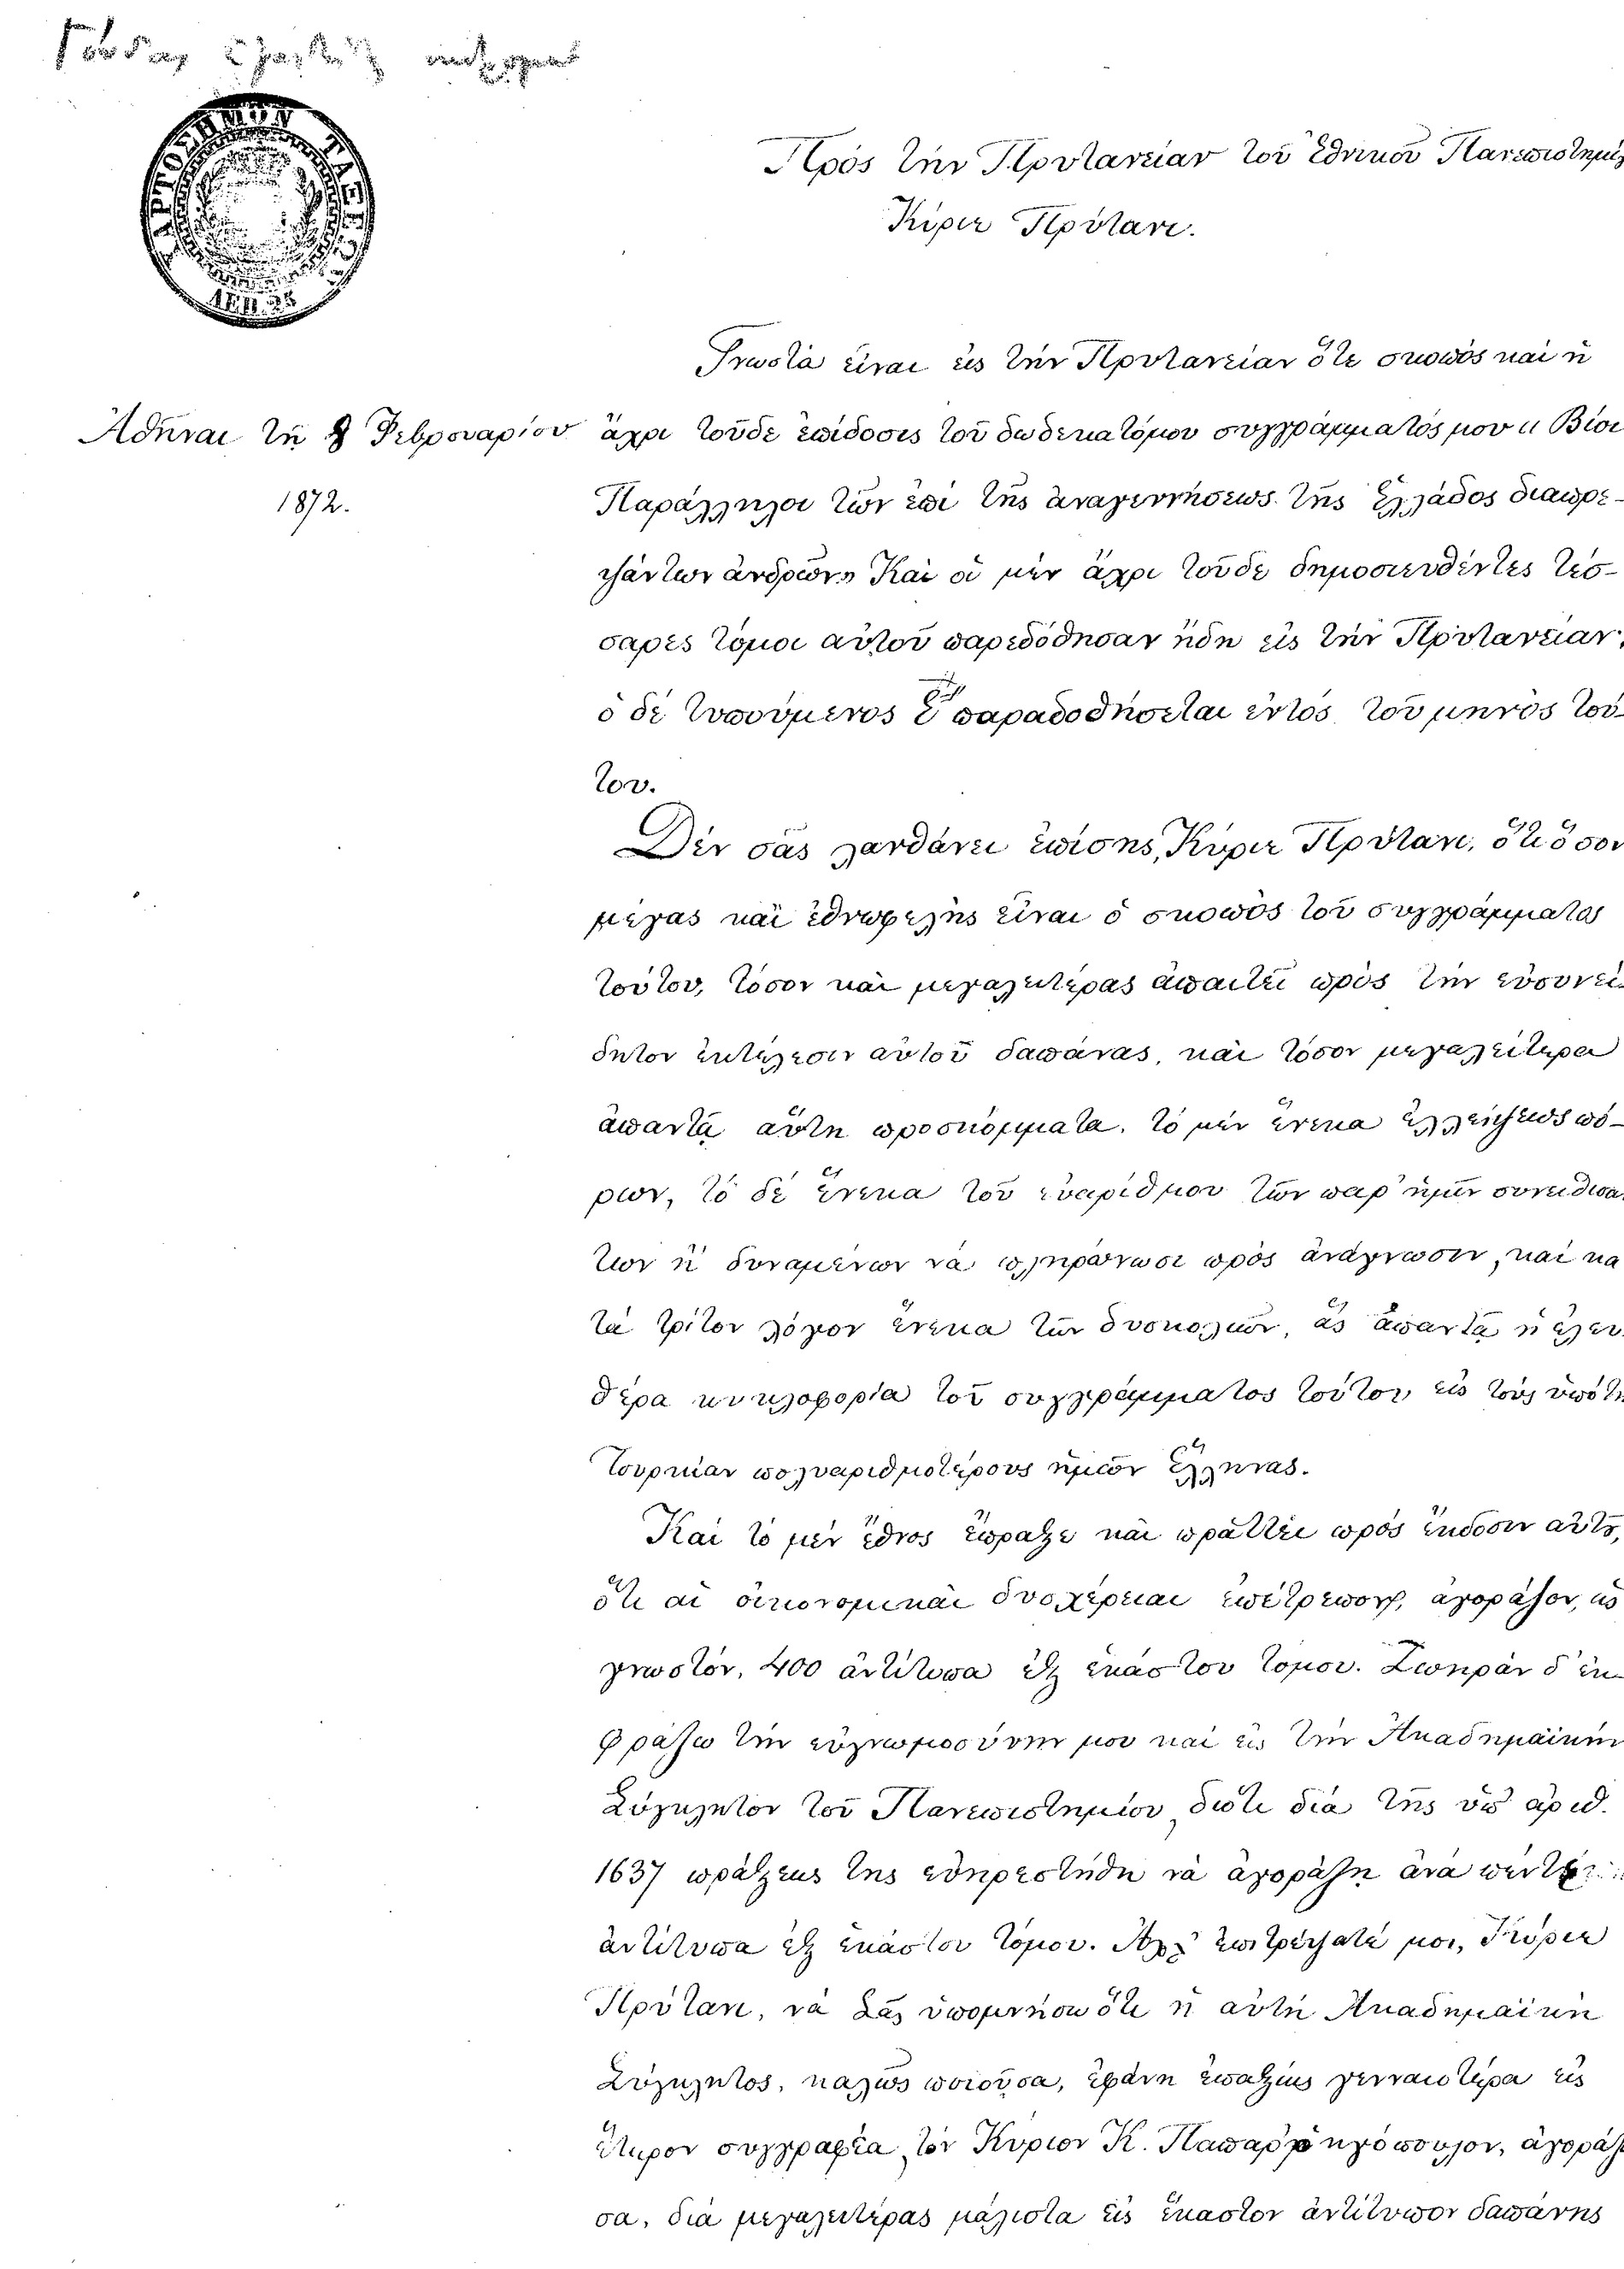 ΧΑΡΤΟΣΗΜΟΝ ΤΑΞΕΩΣ
ΛΕΠ. 25
Πρὸς τὴν Πρυτανείαν τοῦ ἐθνικοῦ Πανεπιστημίου
Κύριε Πρύτανι.
Γνωστὰ εἶναι εἰς τὴν Πρυτανείαν ὅτε σκοπὸς καὶ ἡ
Ἀθῆναι τῇ 8 Φεβρουαρίου
1872.
ἄχρι τοῦδε ἐπίδοσις τοῦ δωδεκατόμου συγγράμματός μου « Βίοι
Παράλληλοι τῶν ἐπὶ τῆς ἀναγεννήσεως τῆς Ἑλλάδος διαπρε-
ψάντων ἀνδρῶν.» Καὶ οἱ μὲν ἄχρι τοῦδε δημοσιευθέντες τέσ-
σαρες τόμοι αὐτοῦ παρεδόθησαν ἤδη εἰς τὴν Πρυτανείαν,
ὁ δὲ τυπούμενος Ε΄ παραδοθήσεται ἐντὸς τοῦ μηνὸς τού-
του.
Δὲν σᾶς λανθάνει ἐπίσης, Κύριε Πρύτανι, ὅτι ὅσον
μέγας καὶ ἐθνωφελὴς εἶναι ὁ σκοπὸς τοῦ συγγράμματος
τούτου, τόσον καὶ μεγαλειτέρας ἀπαιτεῖ πρὸς τὴν εὐσυνεί-
δητον ἐκτέλεσιν αὐτοῦ δαπάνας, καὶ τόσον μεγαλείτερα
ἀπαντᾷ αὕτη προσκόμματα, τὸ μὲν ἕνεκα ἐλλείψεως πό-
ρων, τὸ δὲ ἕνεκα τοῦ εὐαρίθμου τῶν παρ' ἡμῖν συνειθισμέ-
των ἢ δυναμένων νὰ πληρώνωσι πρὸς ἀνάγνωσιν, καὶ κα
τὰ τρίτον λόγον ἕνεκα τῶν δυσκολιῶν, ἃς ἀπαντᾷ ἡ ἐλευ-
θέρα κυκλοφορία τοῦ συγγράμματος τούτου εἰς τοὺς ὑπὸ τὴν
Τουρκίαν πολυαριθμοτέρους ἡμῶν Ἕλληνας.
Καὶ τὸ μὲν ἔθνος ἔπραξε καὶ πράττει πρὸς ἔκδοσιν αὐτοῦ,
ὅτι αἱ οἰκονομικαὶ δυσχέρειαι ἐπέτρεπον, ἀγοράζον, ὡς
γνωστόν, 400 ἀντίτυπα ἐξ ἑκάστου τόμου. Ζωηρὰν δ' ἐκ-
φράζω τὴν εὐγνωμοσύνην μου καὶ εἰς τὴν Ἀκαδημαϊκὴν
Σύγκλητον τοῦ Πανεπιστημίου, διότι διὰ τῆς ὑπ' ἀριθ.
1637 πράξεώς της εὐηρεστήθη νὰ ἀγοράζῃ ἀνὰ πέντε
ἀντίτυπα ἐξ ἑκάστου τόμου. Ἀλλ' ἐπιτρέψατέ μοι, Κύριε
Πρύτανι, νὰ Σᾶς ὑπομνήσω ὅτι ἡ αὐτὴ Ἀκαδημαϊκὴ
Σύγκλητος, καλῶς ποιοῦσα, ἐφάνη ἐπαξίως γενναιοτέρα εἰς
ἕτερον συγγραφέα, τὸν Κύριον Κ. Παπαρρηγόπουλον, ἀγοράζου
σα, διὰ μεγαλειτέρας μάλιστα εἰς ἕκαστον ἀντίτυπον δαπάνης